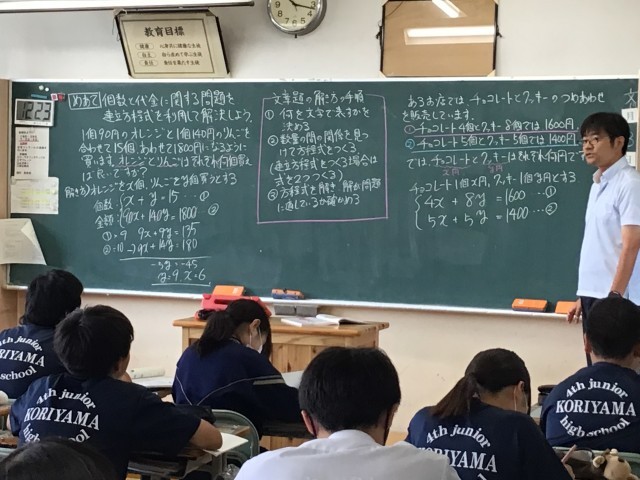 教育目標
めあて 個数と代金に関する問題を
連立方程式を利用して解決しよう。
1個90円のオレンジと1個140円のりんごを
合わせて15個、あわせて1800円になるように
買います。オレンジとりんごはそれぞれ何個買え
ば良いですか?
解き方)オレンジをx個、りんごをy個買うとする
個数 x + y = 15 …①
金額 90x + 140y = 1800 …②
①×9 9x + 9y = 135
②÷10 -) 9x + 14y = 180
-5y = -45
y = 9, x = 6
文章題の解き方の手順
① 何を文字で表すかを
決める
② 数量の間の関係を見つ
けて方程式をつくる
(連立方程式をつくる場合は
式を2つつくる)
③ 方程式を解き、解が問題
に適しているか確かめる
あるお店では、チョコレートとクッキーのつめあわせ
を販売しています。
① チョコレート4個とクッキー8個では1600円、
② チョコレート5個とクッキー5個では1400円
では、チョコレートとクッキーはそれぞれ何円で
x円 y円
チョコレート1個x円、クッキー1個y円とする
4x + 8y = 1600 …①
5x + 5y = 1400 …②
4th junior
KORIYAMA
high school
4th junior
KORIYAMA
high school
4th junior
KORIYAMA
4th junior
KORIYAMA
high school